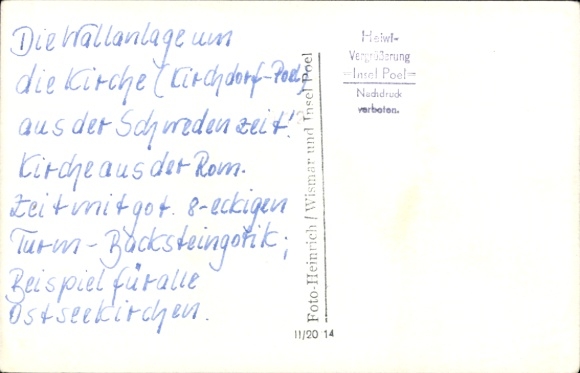 Die Wallanlage um
die Kirche (Kirchdorf-Poel)
aus der Schwedenzeit!
Kirche aus der Rom.
Zeit mit got. 8-eckigen
Turm - Backsteingotik;
Beispiel für alle
Ostseekirchen.
Foto-Heinrich / Wismar und Insel Poel
11/20 14
Heiwi-
Vergrößerung
=Insel Poel=
Nachdruck
verboten.